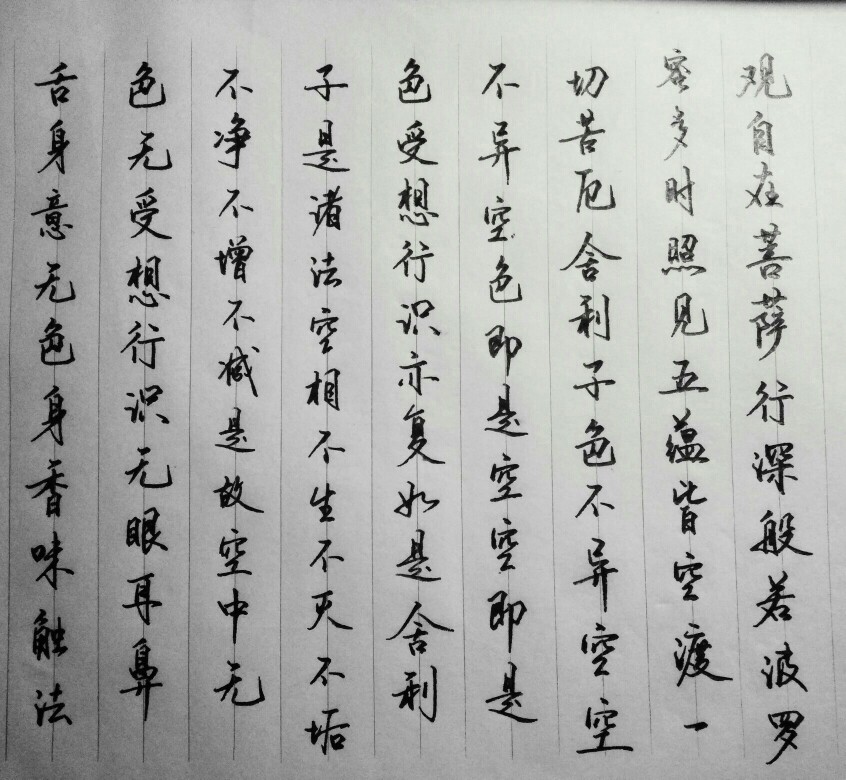 观自在菩萨行深般若波罗
密多时照见五蕴皆空渡一
切苦厄舍利子色不异空空
不异空色即是空空即是
色受想行识亦复如是舍利
子是诸法空相不生不灭不垢
不净不增不减是故空中无
色无受想行识无眼耳鼻
舌身意无色身香味触法